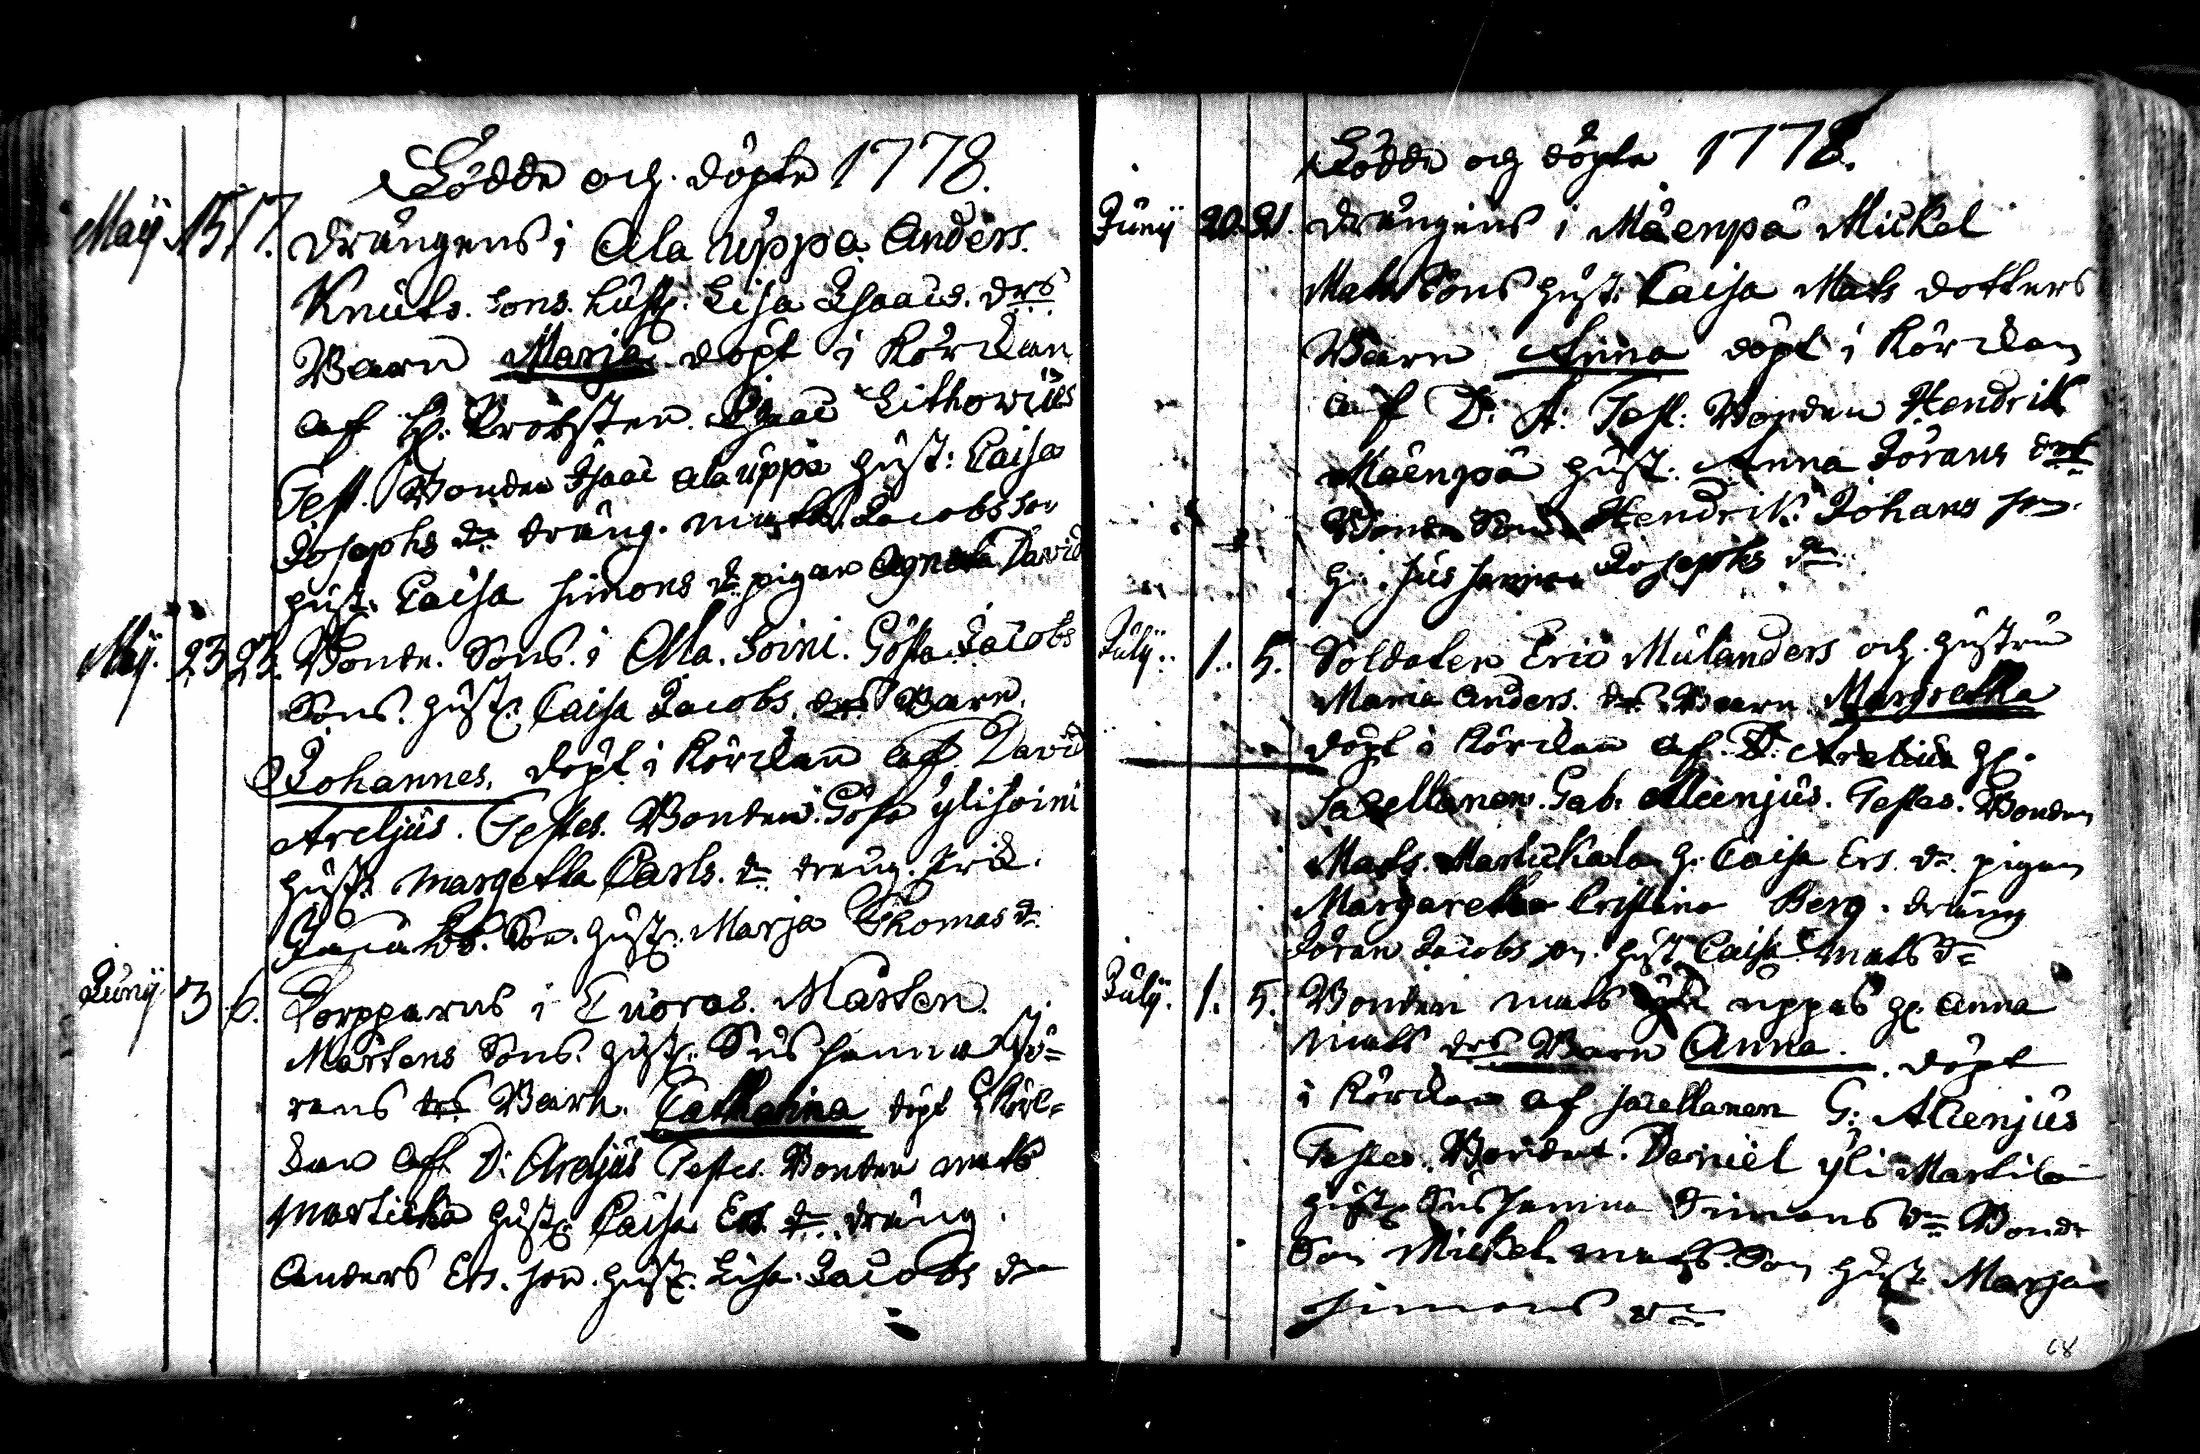 Födde och döpte 1778.
Maij. 15 17. Drängens i Ala uppa. Anders.
Knuts. sons. hust. Lisa Isaacs. drs
Barn Marja döpt i Körckan
af H. Probsten. Isaac Lithovius
Test. Bonden Isaac alauppa hust: Caisa
Josephs dr dräng. Matts Jacobs son
hust. Caisa Simons dr pigan Agneta David
Maij. 23 25. Bonde. Sons. i Ala. Soini. Gösta Jacobs
Sons. hust. Caisa Jacobs. drs Barn.
Johannes. döpt i Körckan af. David
Areljus. Testes. Bonden. Gösta ylisoini
hust. Margetta Carls. dr dräng. Erik.
Son. hust. Marja Thomas dr
Junij 3 6. Torpparns i Tuoras. Mårten.
Mårtens Sons. hust. Susanna Jö=
rans drs Barn. Catharina döpt i Kör=
ckan af D: Areljus Testes. Bonden Matts
Marticka hust. Caisa Ers. dr dräng.
Anders Ers. son. hust. Lisa. Jacobs dr
Födde och döpte 1778.
Junij 20. 21. Drängens i Mäenpä Mickel
Matts Sons hust. Caisa Mats dotters
Barn Anna döpt i Körckan
af D. A: Test: Bonden Hendrik
Mäenpä hust. Anna Jörans dot
Bonde Son Hendrik Johans son.
h. Susanna Josephs dr
Julij. 1. 5. Soldaten Eric Mulanders och hustru
Maria Anders. drs. Barn Margretha
döpt i Körckan af. D: Arelius H.
Sacellanen. Gab. Alcenjus. Testes. Bonden
Mats. Martickala h. Caisa Ers. dr. pigan
Margaretha Cristina Berg. dräng
Jöran Jacobs son hust Caisa Mats dr
Julij. 1. 5. Bonden Mats uppas h. Anna
Matts drs Barn Anna. döpt
i Körckan af Sacellanen G: Alcenjus
Testes. Bonden. Daniel yli Martila
hust. Susanna Simons dr Bonde
Son Mickel Matts. Son hust. Marja
Simons dr
68